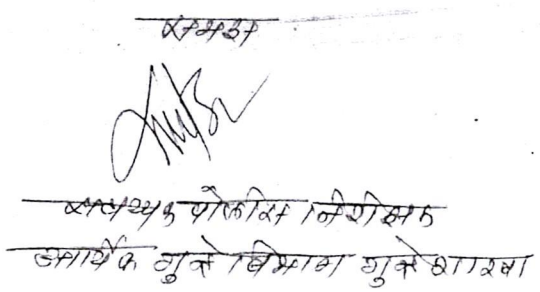 समक्ष
सहाय्यक पोलीस निरीक्षक
आर्थिक गुन्हे विभाग गुन्हे शाखा